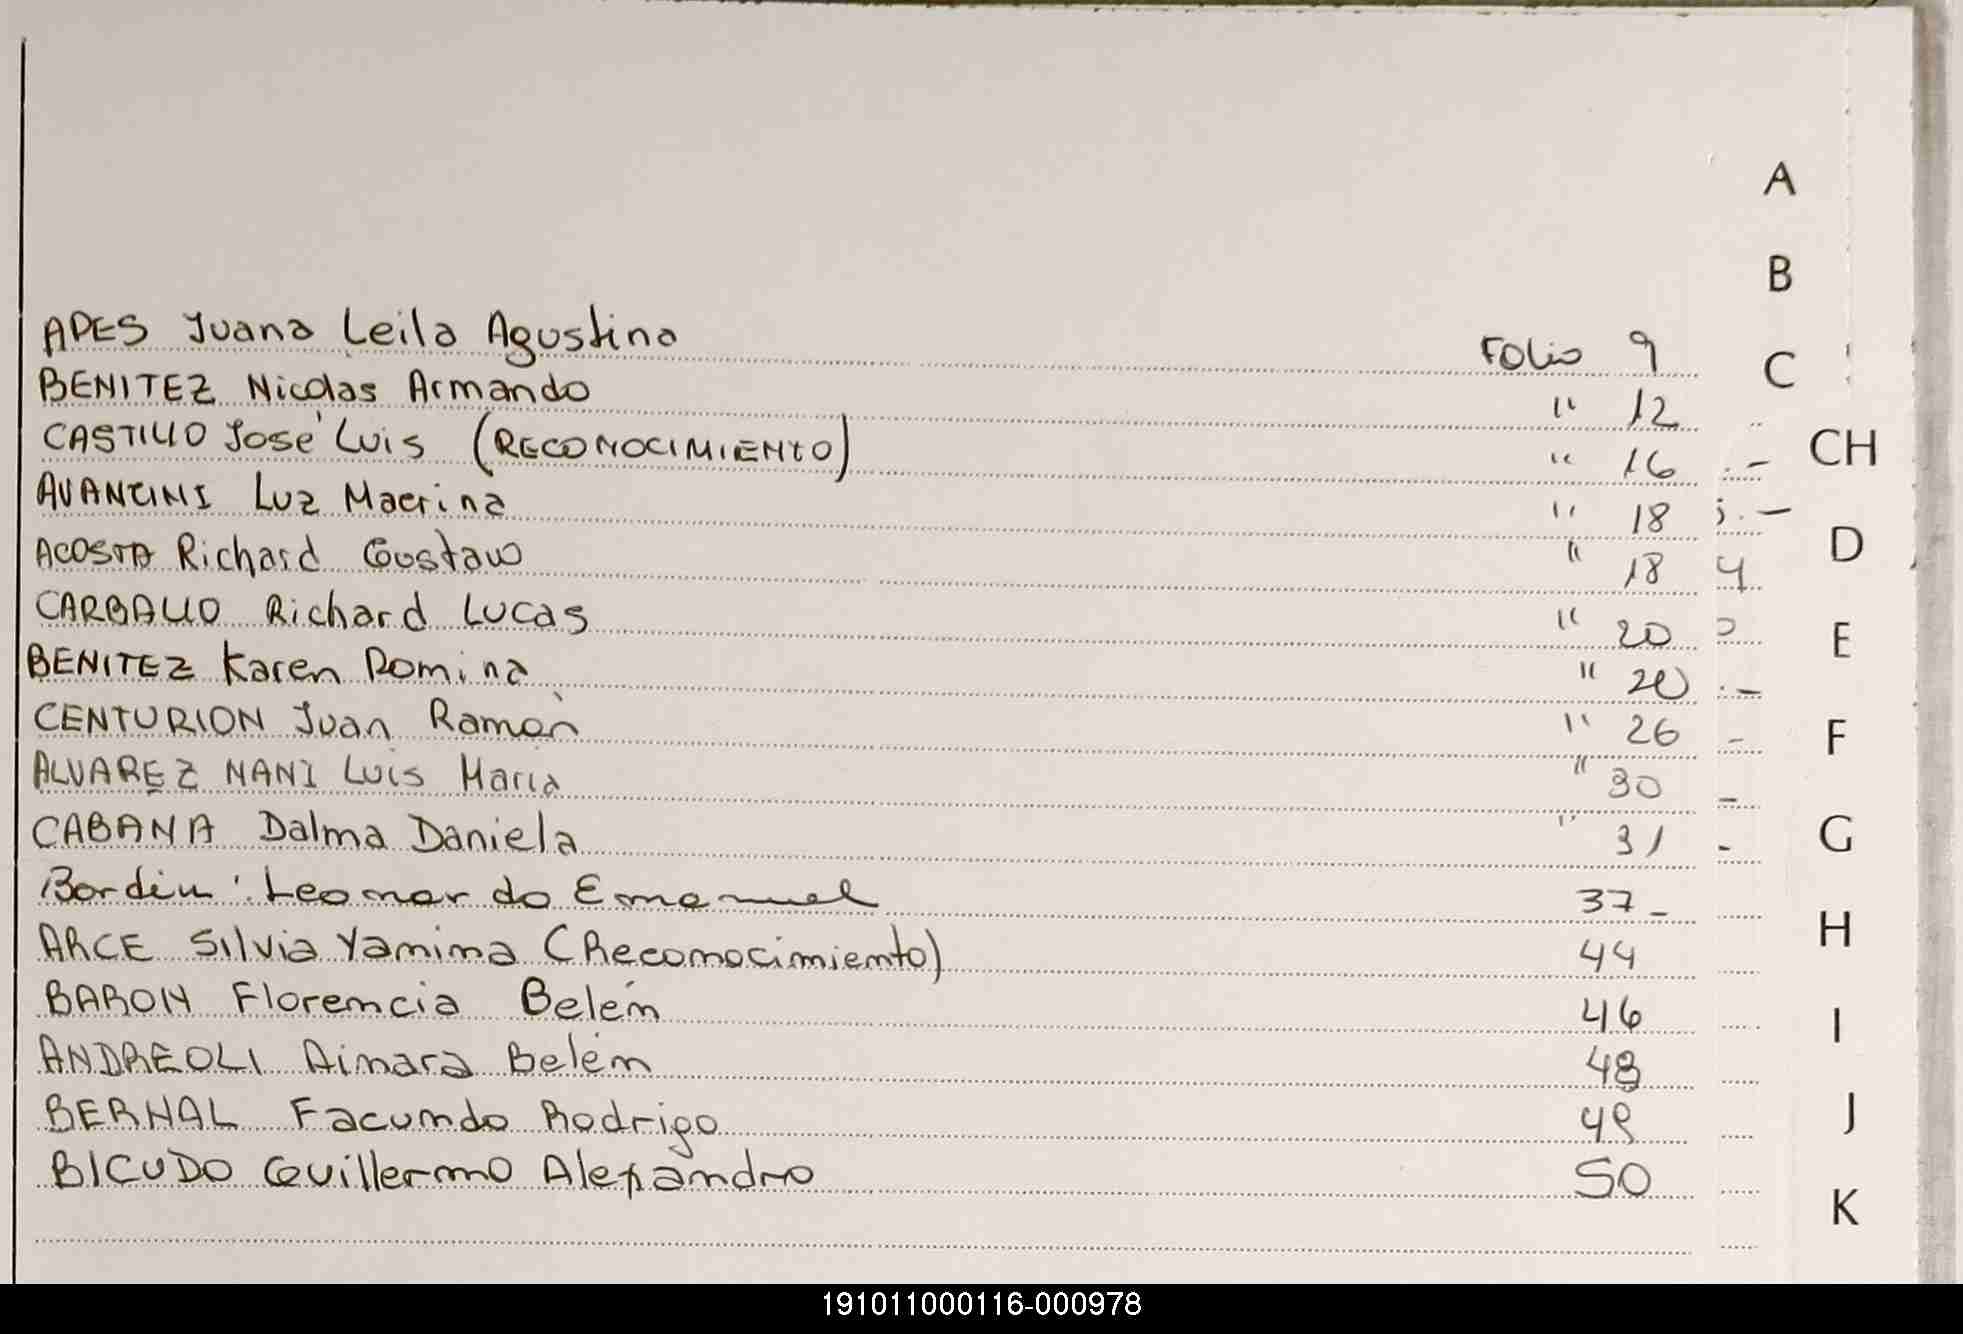 APES Juana Leila Agustina Folio 9
BENITEZ Nicolas Armando " 12
CASTILLO José Luis (RECONOCIMIENTO) " 16
AVANCINI Luz Macrina " 18
ACOSTA Richard Gustavo " 18
CARBALLO Richard Lucas " 20
BENITEZ Karen Romina " 20
CENTURION Juan Ramòn " 26
ALVAREZ NANI Luis Maria " 30
CABANA Dalma Daniela " 31
Bordeu Leonardo Emanuel 37-
ARCE Silvia Yamina (Reconocimiento) 44
BARON Florencia Belén 46
ANDREOLI Aimara Belén 48
BERNAL Facundo Rodrigo 49
BICUDO Guillermo Alexandro 50
A
B
C
CH
D
E
F
G
H
I
J
K
191011000116-000978